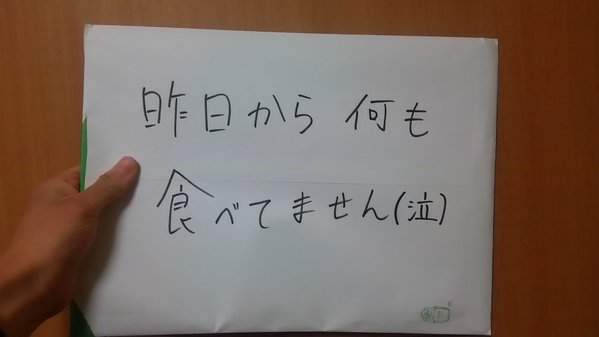 昨日から 何も
食べてません(泣)